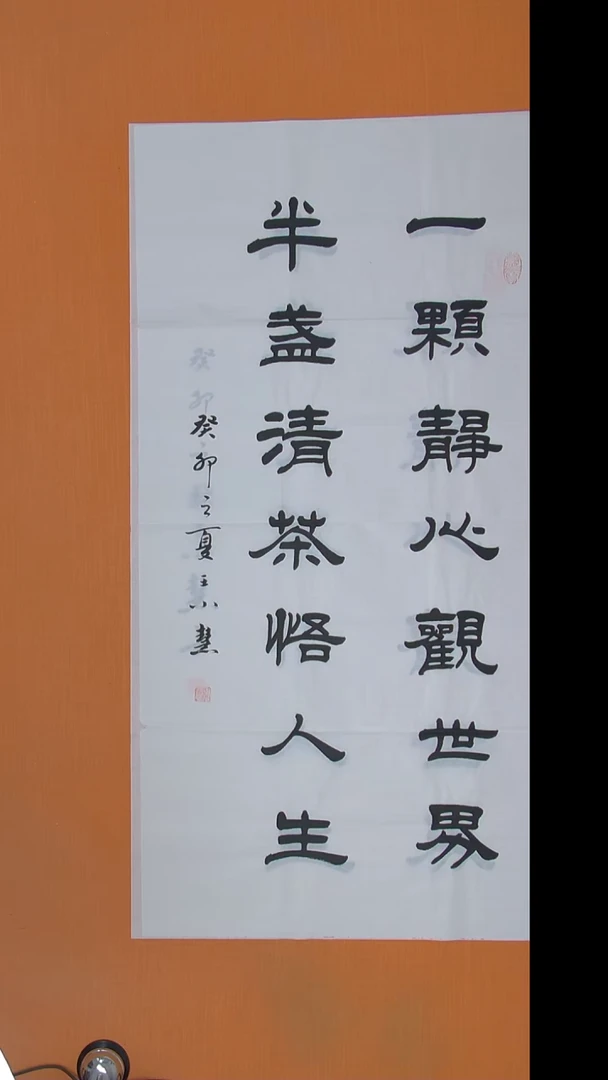 一顆靜心觀世界
半盞清茶悟人生
癸卯之夏王小慧